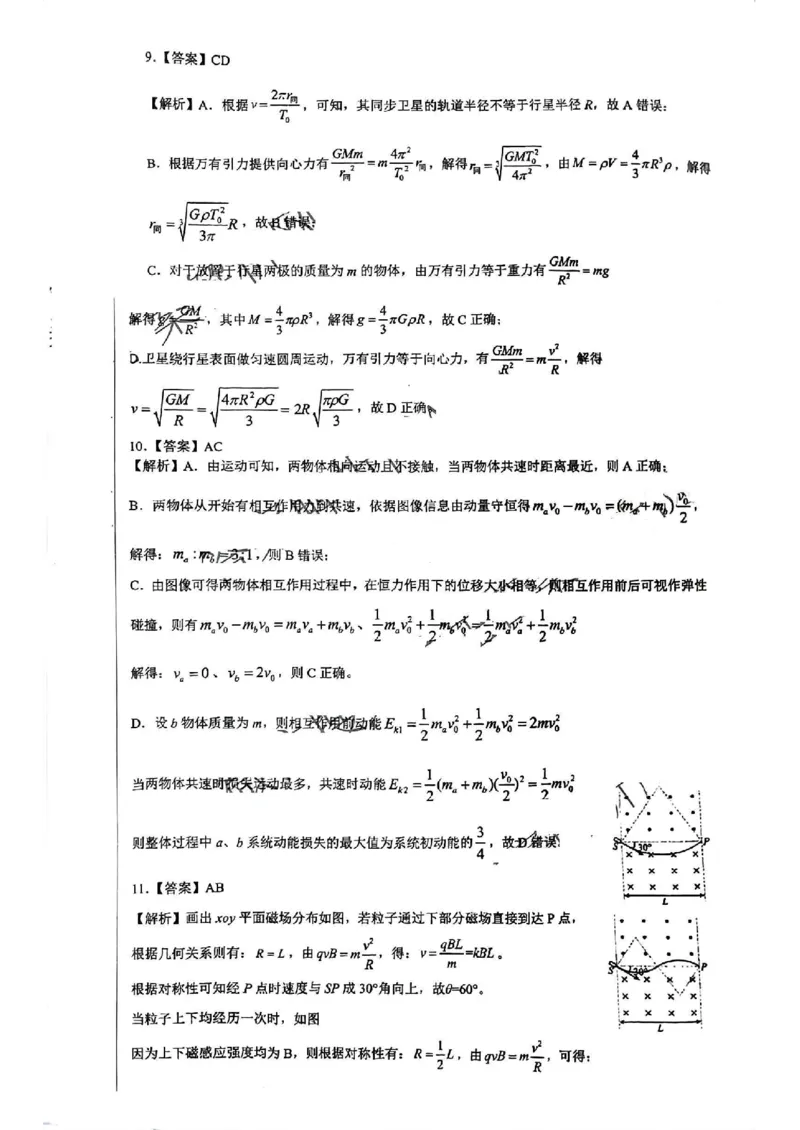 9.【答案】CD
【解析】A．根据 v=2πr同/T₀，可知，其同步卫星的轨道半径不等于行星半径 R，故 A 错误；
B．根据万有引力提供向心力有 GMm/r同²=m4π²/T₀² r同，解得 r同=∛(GMT₀²/4π²)，由 M=ρV=4/3πR³ρ，解得
r同=∛(GρT₀²/3π)R，故B错误；
C．对于放置于行星两极的质量为 m 的物体，由万有引力等于重力有 GMm/R²=mg
解得 g=GM/R²，其中 M=4/3πρR³，解得 g=4/3πGρR，故 C 正确；
D.卫星绕行星表面做匀速圆周运动，万有引力等于向心力，有 GMm/R²=m v²/R，解得
v=√(GM/R)=√(4πR²ρG/3)=2R√(πρG/3)，故 D 正确
10.【答案】AC
【解析】A．由运动可知，两物体相向运动且不接触，当两物体共速时距离最近，则 A 正确；
B．两物体从开始有相互作用力到共速，依据图像信息由动量守恒得 mₐv₀−m_bv₀=(mₐ+m_b)v₀/2，
解得：mₐ:m_b=3:1，则 B 错误；
C．由图像可得两物体相互作用过程中，在恒力作用下的位移大小相等，则相互作用前后可视作弹性
碰撞，则有 mₐv₀−m_bv₀=mₐvₐ+m_bv_b、1/2mₐv₀²+1/2m_bv₀²=1/2mₐvₐ²+1/2m_bv_b²
解得：vₐ=0、v_b=2v₀，则 C 正确。
D．设 b 物体质量为 m，则相互作用前动能 E_k1=1/2mₐv₀²+1/2m_bv₀²=2mv₀²
当两物体共速时损失动最多，共速时动能 E_k2=1/2(mₐ+m_b)(v₀/2)²=1/2mv₀²
则整体过程中 a、b 系统动能损失的最大值为系统初动能的 3/4，故 D 错误；
11.【答案】AB
【解析】画出 xoy 平面磁场分布如图，若粒子通过下部分磁场直接到达 P 点，
根据几何关系则有：R=L，由 qvB=m v²/R，得：v=qBL/m=kBL。
根据对称性可知经 P 点时速度与 SP 成 30°角向上，故θ=60°。
当粒子上下均经历一次时，如图
因为上下磁感应强度均为 B，则根据对称性有：R=1/2L，由 qvB=m v²/R，可得：
S 30° P
L
S 30° P
L